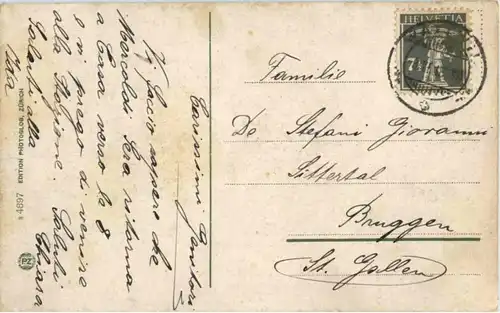 Carissimi Genitori
Vi faccio sapere che
Mercoldi Sera ritorno
a Casa verso le 8
e vi prego di venire
alla Stazione. Saluti
Saluti alla Chiara
Ida
EDITION PHOTOGLOB, ZÜRICH
4897
PZ
HELVETIA
7½
Familie
De Stefani Giovanni
Sittertal
Bruggen
St. Gallen